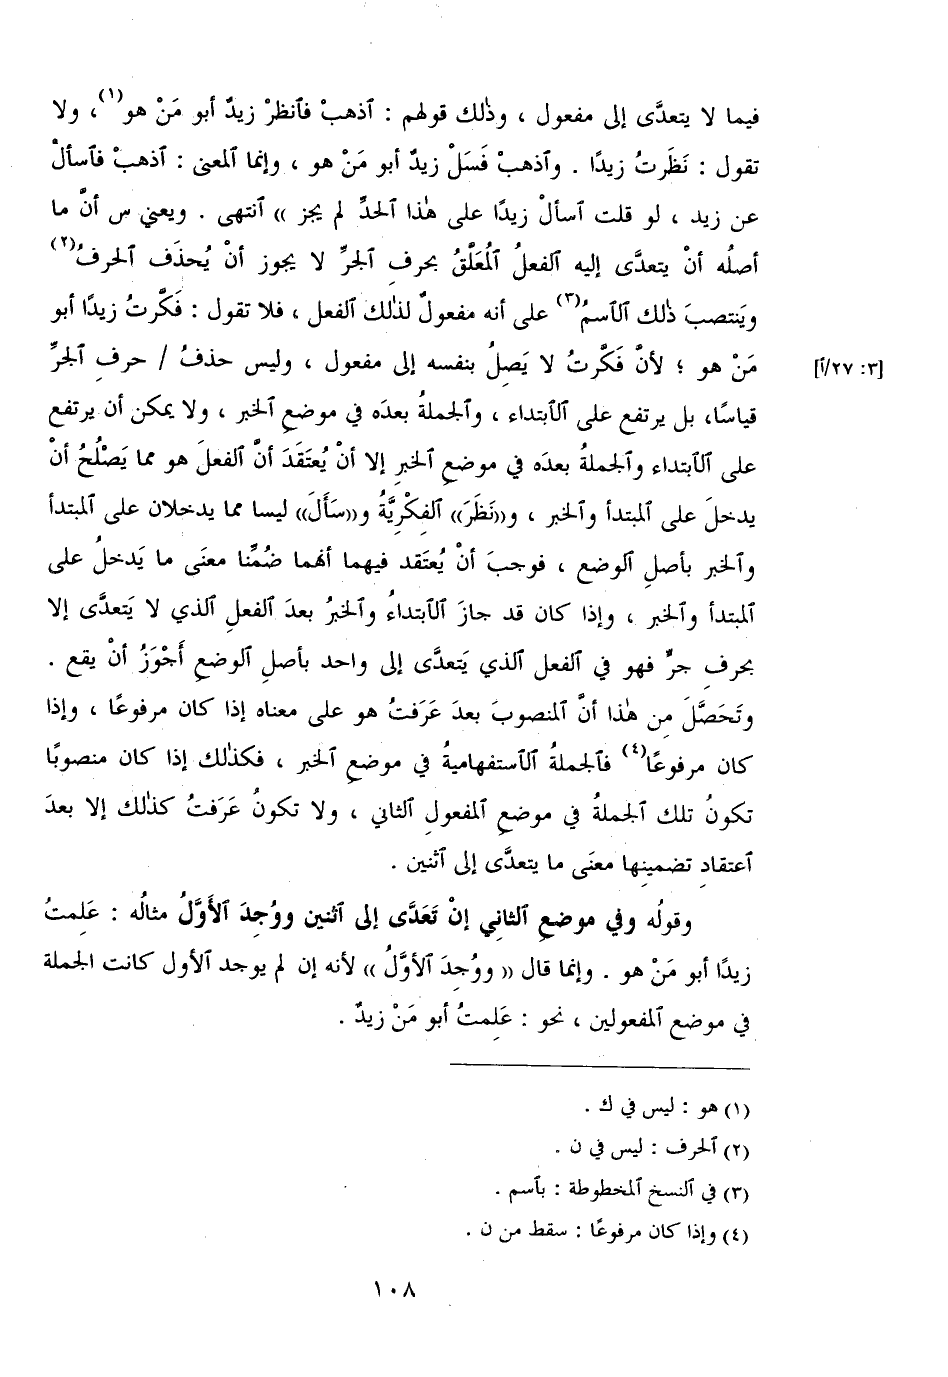 فيما لا يتعدَّى إلى مفعول ، وذٰلك قولهم : ٱذهبْ فٱنظرْ زيدٌ أبو مَنْ هو(١)، ولا
تقول : نَظَرتُ زيدًا . وٱذهبْ فَسَلْ زيدٌ أبو مَنْ هو ، وإنما ٱلمعنى : ٱذهبْ فٱسألْ
عن زيد ، لو قلت ٱسألْ زيدًا على هٰذا ٱلحدِّ لم يجز )) ٱنتهى . ويعني س أنَّ ما
أصلُه أنْ يتعدَّى إليه ٱلفعلُ ٱلمُعَلَّقُ بحرفِ ٱلجرِّ لا يجوز أنْ يُحذَف ٱلحرفُ(٢)
ويَنتصبَ ذٰلك ٱلٱسمُ(٣) على أنه مفعولٌ لذٰلك ٱلفعل ، فلا تقول : فَكَّرتُ زيدًا أبو
مَنْ هو ؛ لأنَّ فَكَّرتُ لا يَصِلُ بنفسه إلى مفعول ، وليس حذفُ / حرفِ ٱلجرِّ [٣: ٢٧/أ]
قياسًا، بل يرتفع على ٱلٱبتداء ، وٱلجملةُ بعدَه في موضعِ ٱلخبر ، ولا يمكن أن يرتفع
على ٱلٱبتداء وٱلجملةُ بعدَه في موضعِ ٱلخبرِ إلا أنْ يُعتَقَدَ أنَّ ٱلفعلَ هو مما يَصْلُحُ أنْ
يدخلَ على ٱلمبتدأ وٱلخبر ، و((نَظَرَ)) ٱلفِكْرِيَّةُ و((سَأَلَ)) ليسا مما يدخلان على ٱلمبتدأ
وٱلخبر بأصلِ ٱلوضع ، فوجبَ أنْ يُعتَقد فيهما أنهما ضُمِّنا معنَى ما يَدخلُ على
ٱلمبتدأ وٱلخبر ، وإذا كان قد جازَ ٱلٱبتداءُ وٱلخبرُ بعدَ ٱلفعلِ ٱلذي لا يَتعدَّى إلا
بحرفِ جرٍّ فهو في ٱلفعل ٱلذي يَتعدَّى إلى واحد بأصلِ ٱلوضعِ أَجْوَزُ أنْ يقع .
وتَحَصَّلَ مِن هٰذا أنَّ ٱلمنصوبَ بعدَ عَرَفتُ هو على معناه إذا كان مرفوعًا ، وإذا
كان مرفوعًا(٤) فٱلجملةُ ٱلٱستفهاميةُ في موضعِ ٱلخبر ، فكذٰلك إذا كان منصوبًا
تكونُ تلك ٱلجملةُ في موضعِ ٱلمفعولِ ٱلثاني ، ولا تكونُ عَرَفتُ كذٰلك إلا بعدَ
ٱعتقادِ تضمينِها معنَى ما يتعدَّى إلى ٱثنين .
وقولُه وفي موضعِ ٱلثاني إنْ تَعَدَّى إلى ٱثنين ووُجِدَ ٱلأَوَّلُ مثالُه : عَلِمتُ
زيدًا أبو مَنْ هو . وإنما قال (( ووُجِدَ ٱلأوَّلُ )) لأنه إن لم يوجد ٱلأول كانت ٱلجملة
في موضع ٱلمفعولين ، نحو : عَلِمتُ أبو مَنْ زيدٌ .
(١) هو : ليس في ك .
(٢) ٱلحرف : ليس في ن .
(٣) في ٱلنسخ ٱلمخطوطة : بٱسم .
(٤) وإذا كان مرفوعًا : سقط من ن .
١٠٨